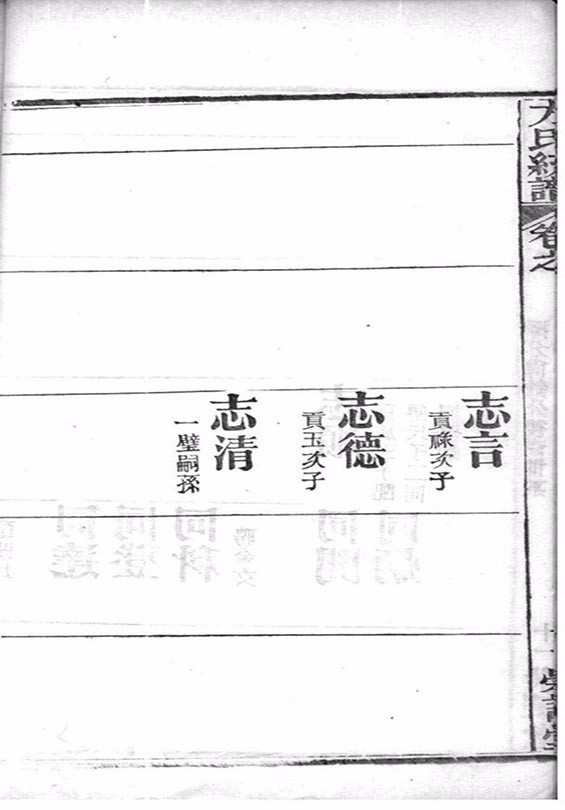 方氏統譜
卷之
志言
貢祿次子
志德
貢玉次子
志清
一璧嗣孫